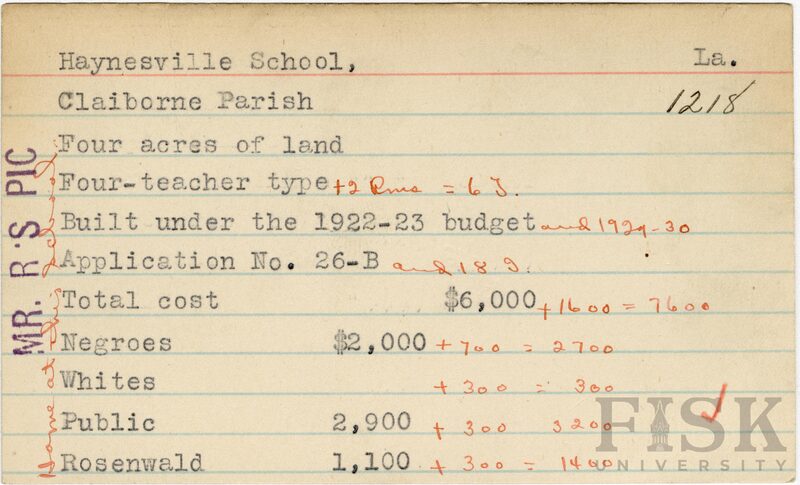 Haynesville School, La.
Claiborne Parish 1218
Four acres of land
Four-teacher type +2 Rms = 6 T.
Built under the 1922-23 budget and 1929-30
Application No. 26-B and 18 I.
Total cost $6,000 +1600 = 7600
Negroes $2,000 + 700 = 2700
Whites + 300 = 300
Public 2,900 + 300 3200
Rosenwald 1,100 + 300 = 1400
MR. R'S PIC
Home at this school
FISK
UNIVERSITY